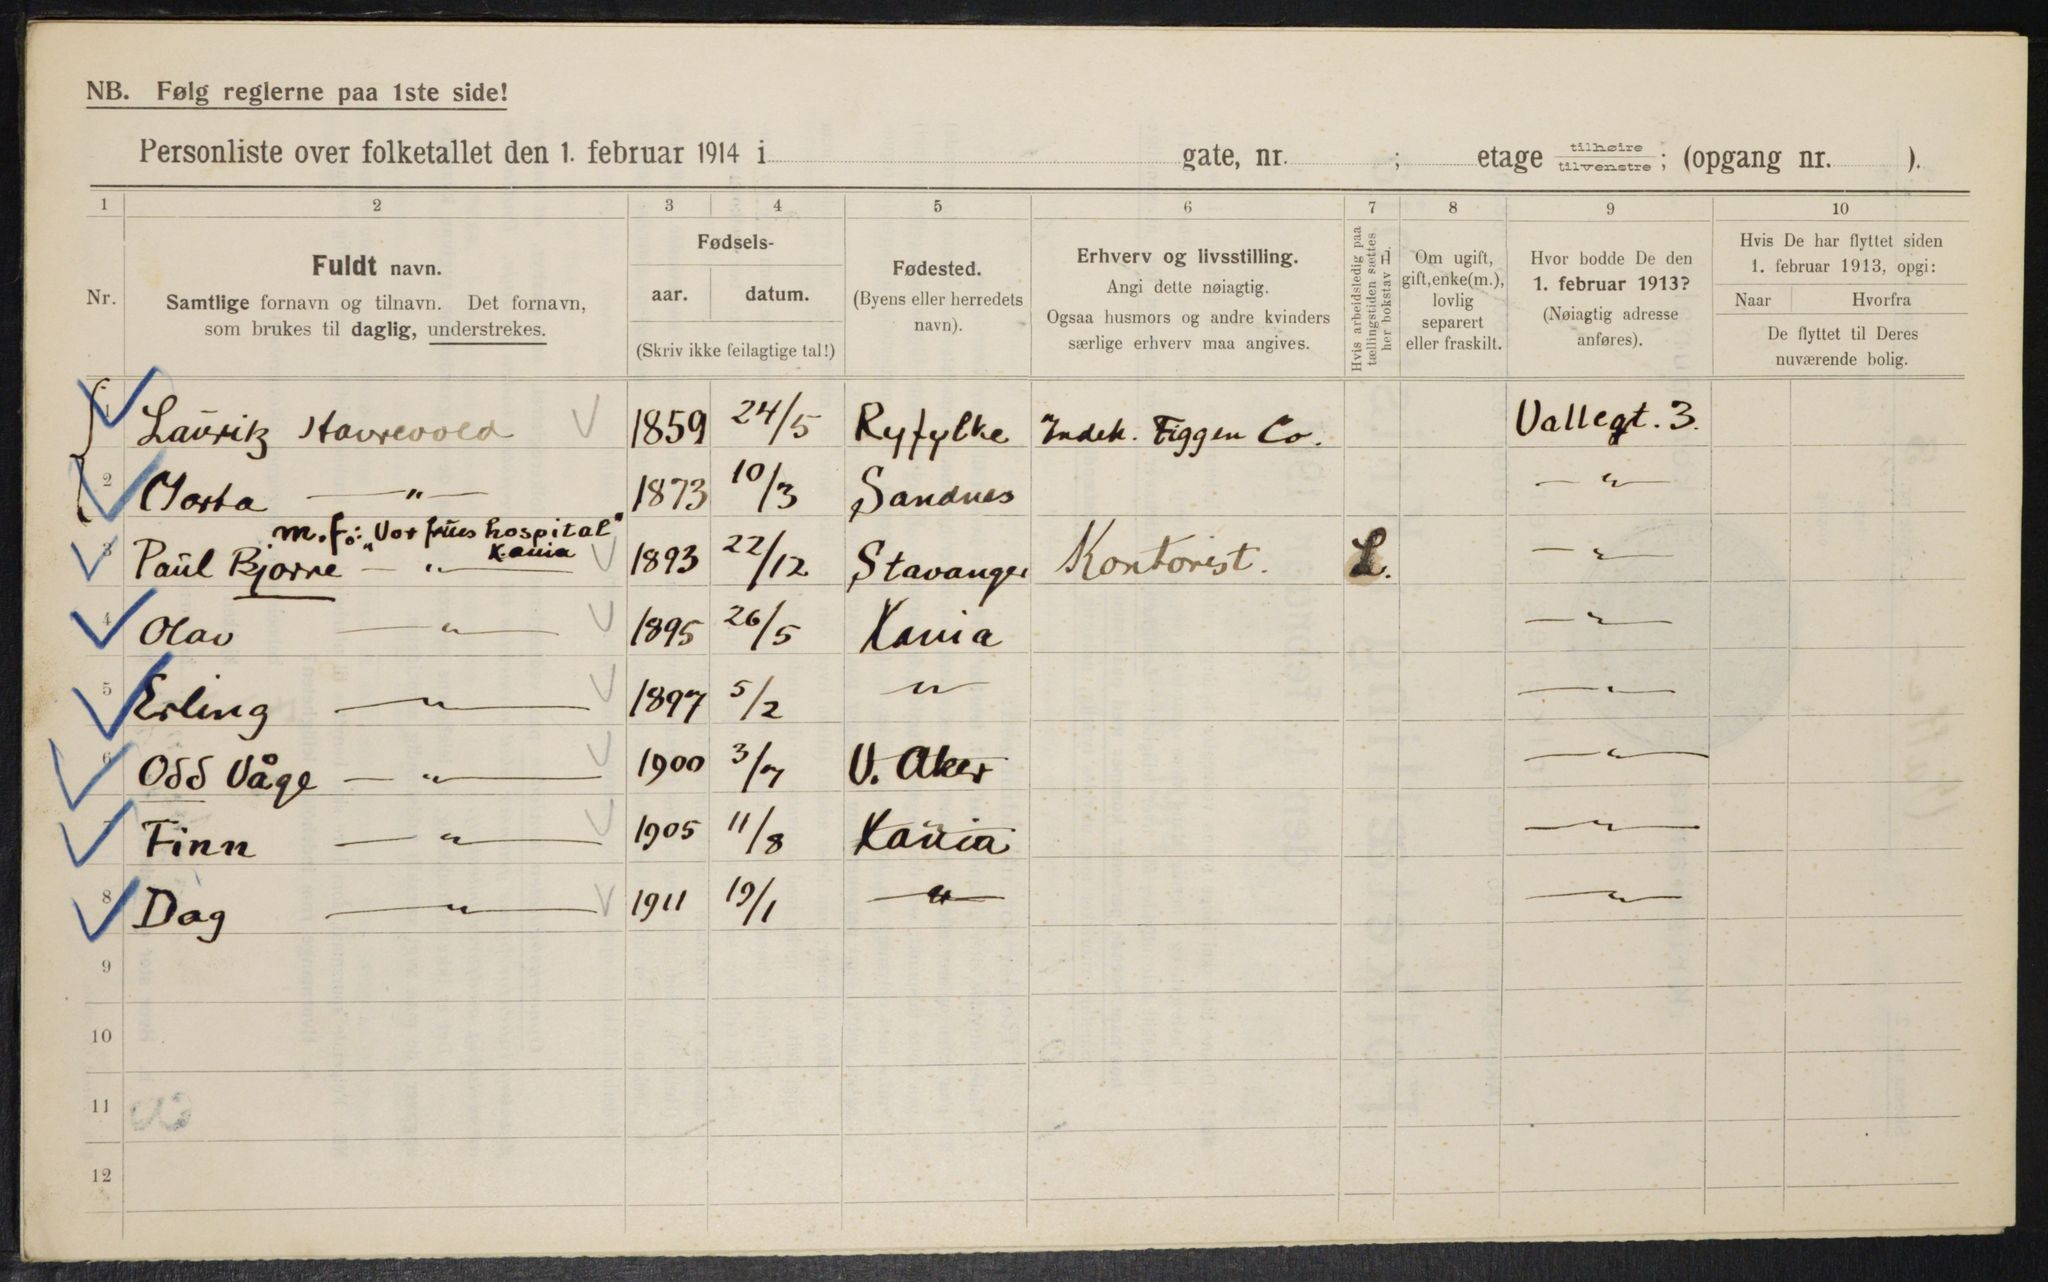 NB. Følg reglerne paa 1ste side!
Personliste over folketallet den 1. februar 1914 i gate, nr. ; etage tilhøire tilvenstre; (opgang nr. ).
1 2 3 4 5 6 7 8 9 10
Nr.
Fuldt navn.
Samtlige fornavn og tilnavn. Det fornavn,
som brukes til daglig, understrekes.
Fødsels-
aar. datum.
(Skriv ikke feilagtige tal!)
Fødested.
(Byens eller herredets
navn).
Erhverv og livsstilling.
Angi dette nøiagtig.
Ogsaa husmors og andre kvinders
særlige erhverv maa angives.
Hvis arbeidsledig paa
tællingstiden sættes
her bokstav L.
Om ugift,
gift, enke(m.),
lovlig
separert
eller fraskilt.
Hvor bodde De den
1. februar 1913?
(Nøiagtig adresse
anføres).
Hvis De har flyttet siden
1. februar 1913, opgi:
Naar Hvorfra
De flyttet til Deres
nuværende bolig.
1 Lauritz 1859 24/5 Ryfylke Co. Vallegt. 3.
2 — " — 1873 10/3 Sandnes — " —
m.f.: "Vor frues hospital"
K.ania
3 Paul Bjarne — " — 1893 22/12 Stavanger Kontorist. L. — " —
4 Olav — " — 1895 26/5 Kania — " —
5 Erling — " — 1897 5/2 " — " —
6 Odd Våge — " — 1900 3/7 V. Aker — " —
7 Finn — " — 1905 11/8 Kania — " —
8 Dag — " — 1911 19/1 — " — — " —
9
10
11
12